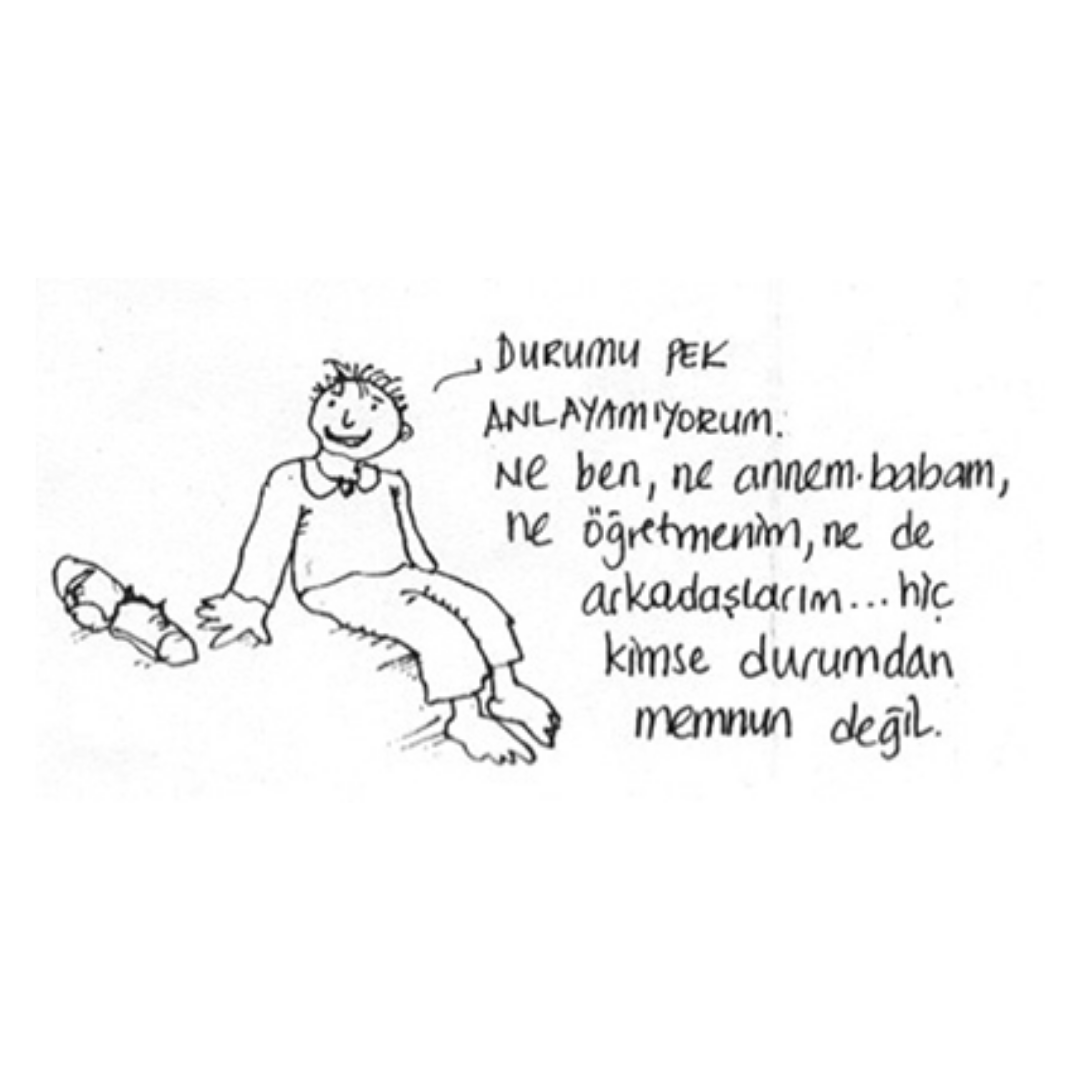 DURUMU PEK
ANLAYAMIYORUM.
Ne ben, ne annem-babam,
ne öğretmenim, ne de
arkadaşlarım... hiç
kimse durumdan
memnun değil.